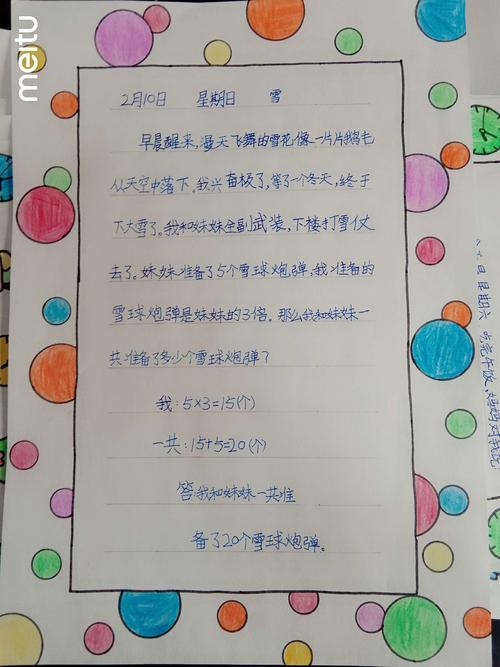 meitu
2月10日 星期日 雪
早晨醒来,漫天飞舞的雪花像一片片鹅毛
从天空中落下。我兴奋极了,等了一个冬天,终于
下大雪了。我和妹妹全副武装,下楼打雪仗
去了。妹妹准备了5个雪球炮弹,我准备的
雪球炮弹是妹妹的3倍。那么我和妹妹一
共准备了多少个雪球炮弹?
我:5×3=15(个)
一共:15+5=20(个)
答我和妹妹一共准
备了20个雪球炮弹。
星期六 吃完午饭,妈妈对我说